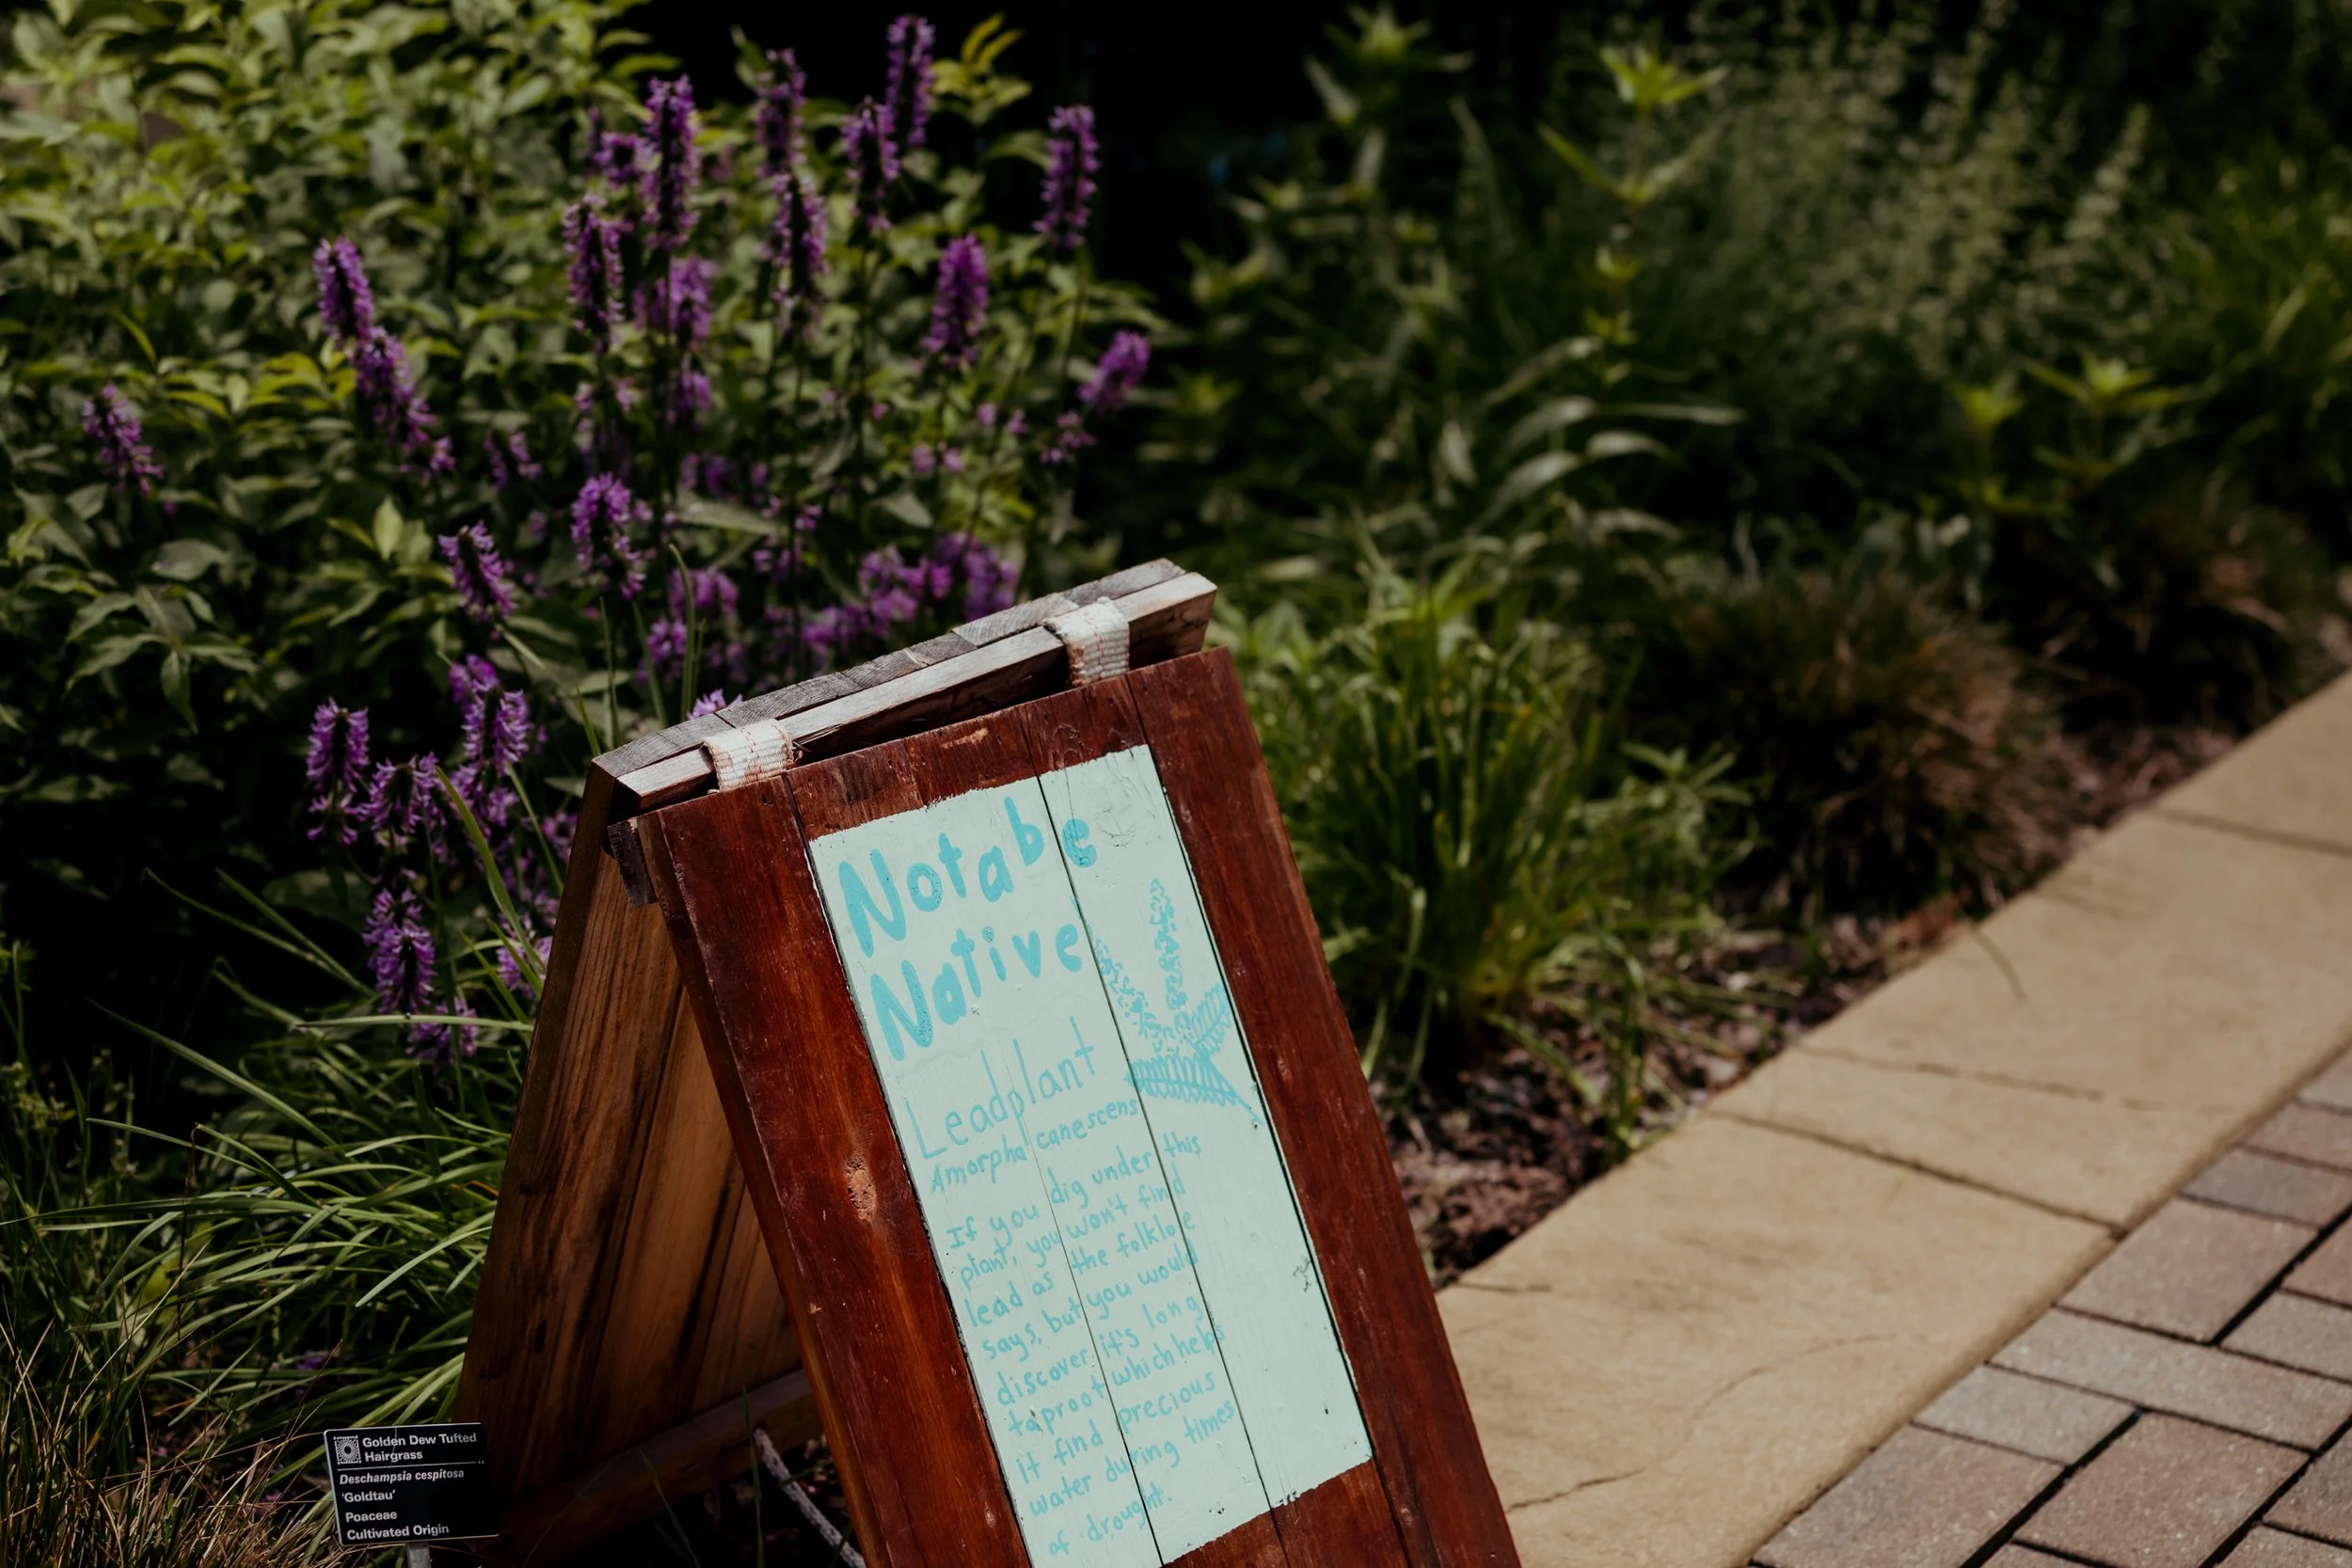 Notable
Native
Leadplant
Amorpha canescens
If you dig under this
plant, you won't find
lead as the folklore
says, but you would
discover it's long
taproot which helps
it find precious
water during times
of drought.
Golden Dew Tufted
Hairgrass
Deschampsia cespitosa
'Goldtau'
Poaceae
Cultivated Origin